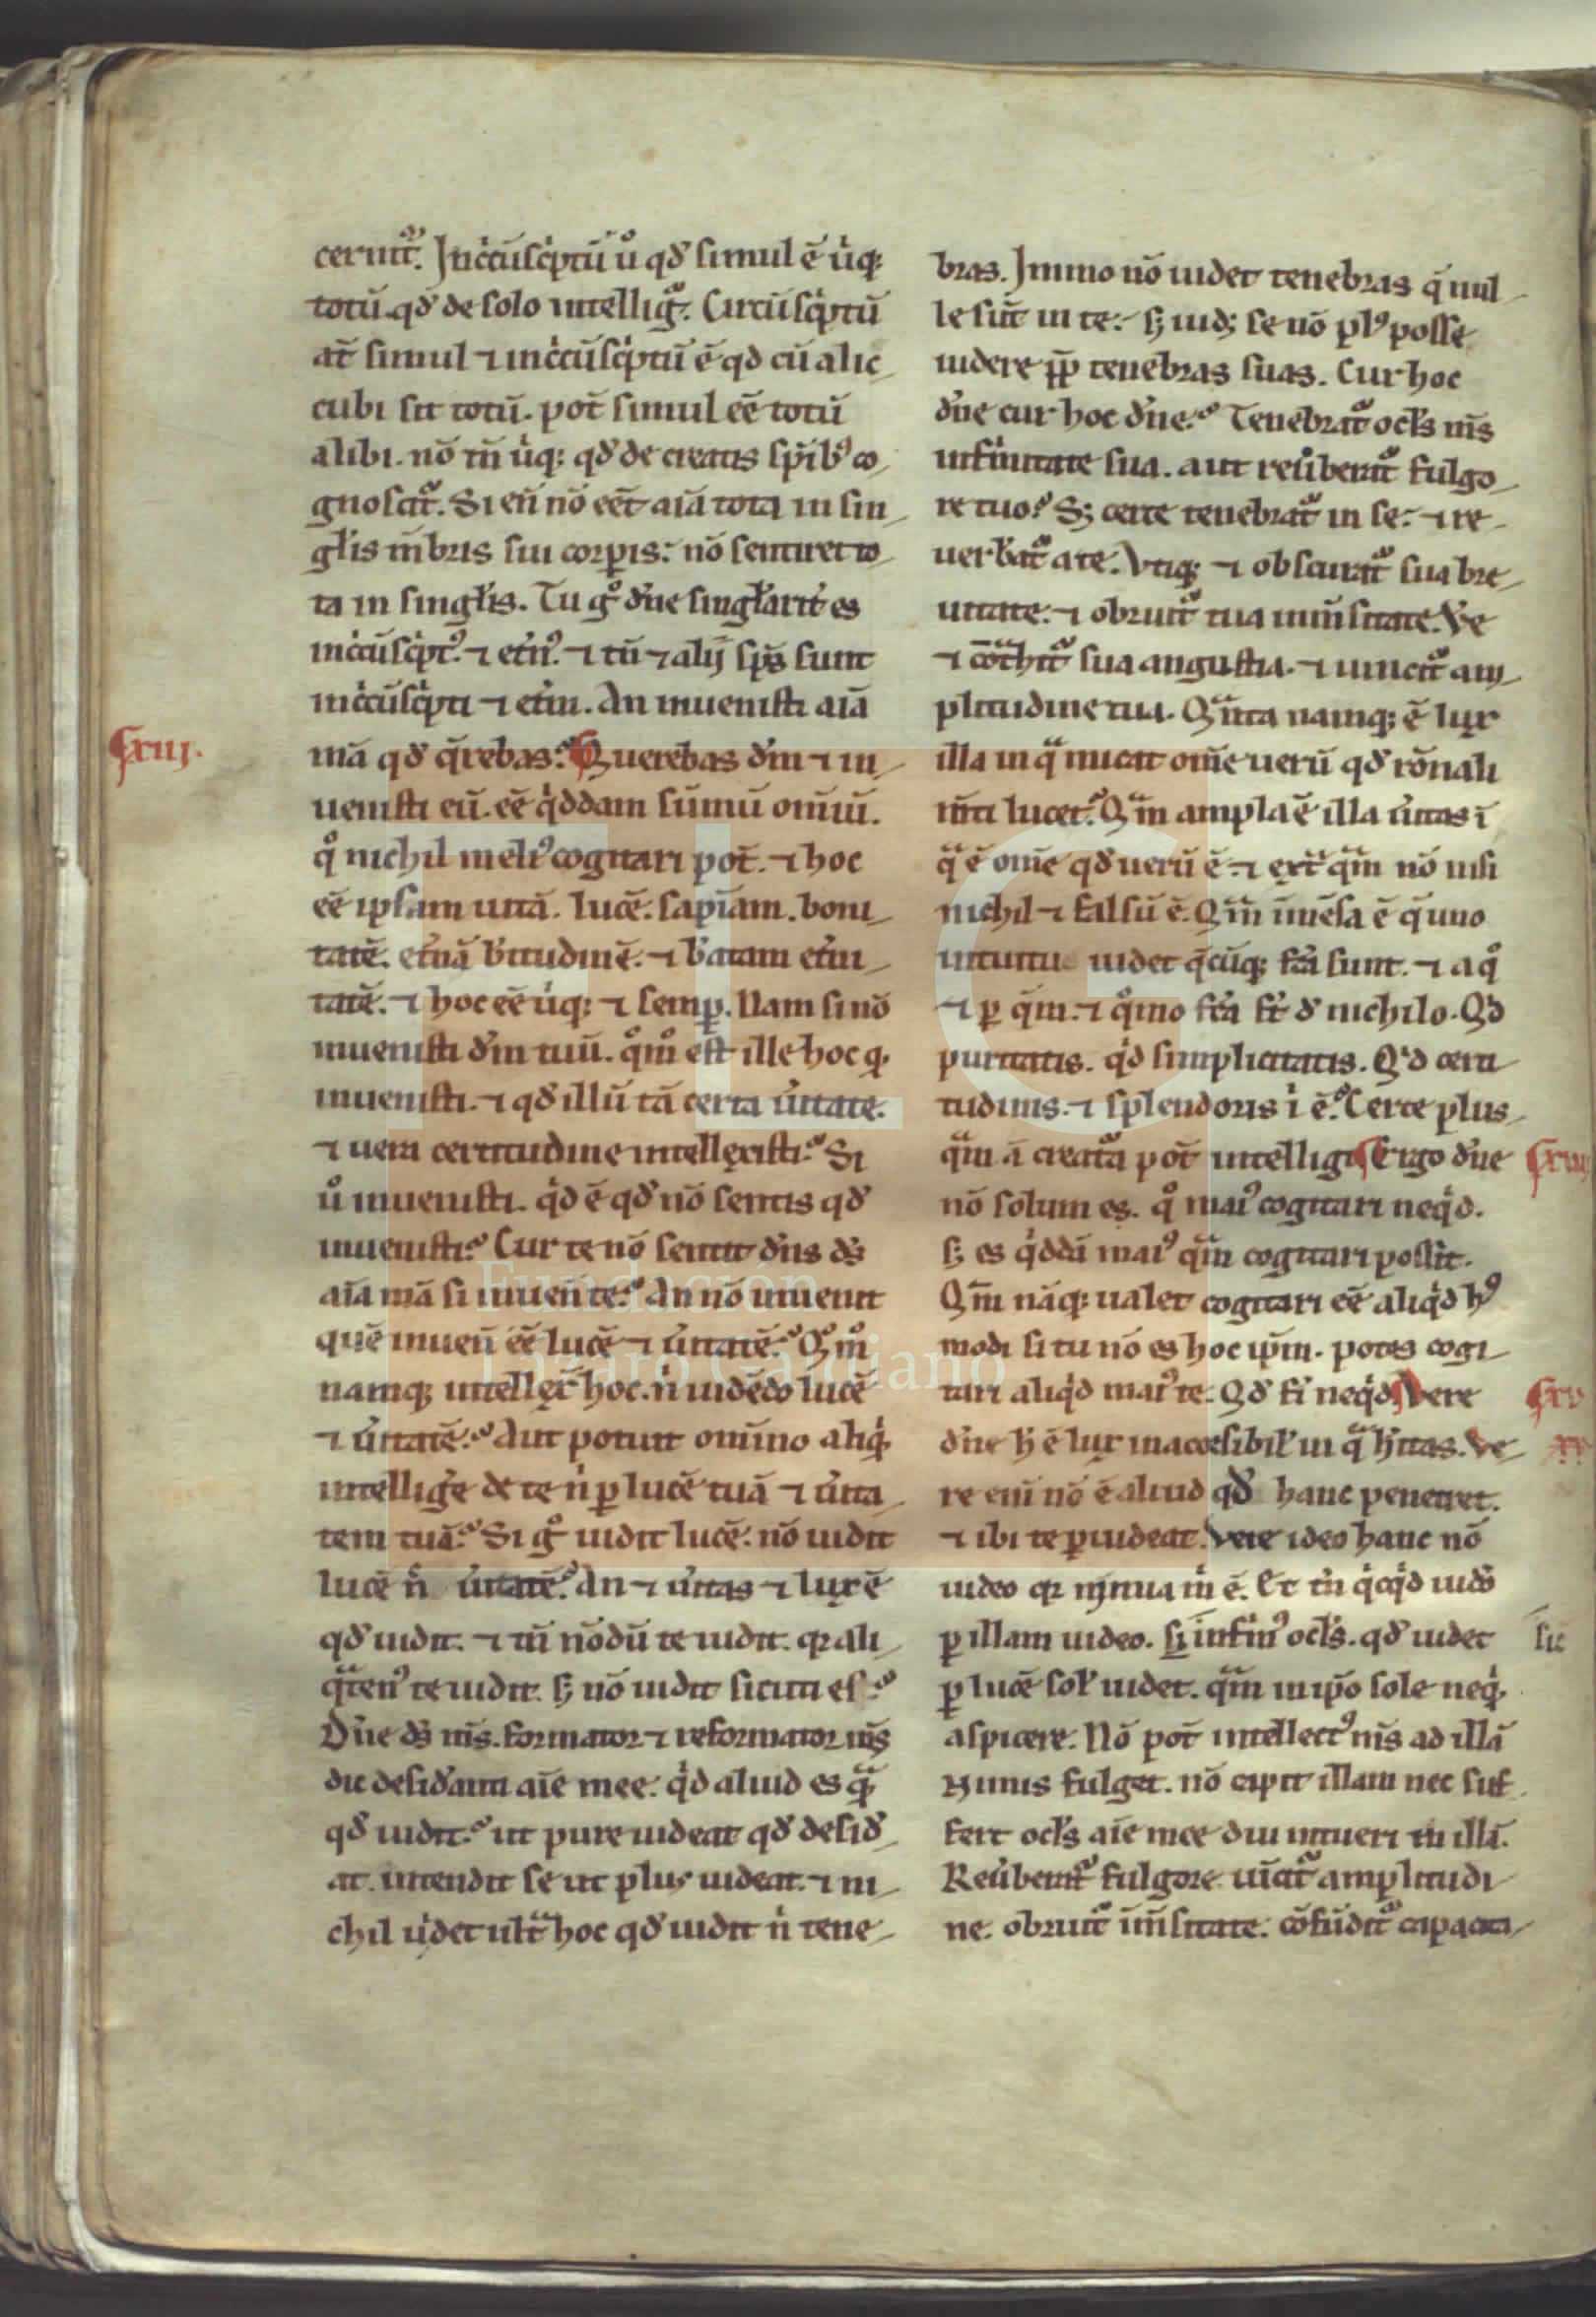 cernit᷑. Inc̉cūsc̉ptū u̾ qd̾ simul ē ubiq;
totū. qd̾ de solo intelligit᷑. Circūsc̉ptū
at̄ simul ⁊ inc̉cūsc̉ptū ē qd cū alic
cubi sit totū. pot̄ simul eē totū
alibi. nō tn̄ ubiq; qd̾ de creatis sp̄ib᷒ co
gnoscit᷑. Si eni̅ nō eēt aīa tota in sin
gl̾is mb̄ris sui corꝑis: nō sentiret to
ta in singl̾is. Tu gͦ dn̄e singl̾arit̾ es
inc̉cūsc̉pt᷒. ⁊ et̾n᷒. ⁊ tn̄ ⁊ alij sp̄s sunt
inc̉cūsc̉pti ⁊ et̾ni. An inuenisti aīa
xiij.
mā qd̾ q̄rebas? Querebas dm̄ ⁊ in
uenisti eū. eē qͥddam sūmū om̄iū.
qͦ nichil meli᷒ cogitari pot̄. ⁊ hoc
eē ipsam uitā. lucē. sapīam. boni
tatē. et̾nā b̾titudinē. ⁊ b̾atam et̾ni
tatē. ⁊ hoc eē ubiq; ⁊ semꝑ. Nam si nō
inuenisti dm̄ tuū. qͦmͦ est ille hoc q̇
inuenisti. ⁊ qd̾ illū tā certa u̾itate.
⁊ uera certitudine intellexisti? Si
u̾ͦ inuenisti. qͥd ē qd̾ nō sentis qd̾
inuenisti? Cur te nō sentit dn̄s ds̄
aīa mā si inuen̄ te? An nō inuenit
quē inuen̄ eē lucē ⁊ u̾itatē? Qͦmͦ
namq; intellex̄ hoc. nͥ uidēdo lucē
⁊ u̾itatē? Aut potuit om̄ino aliqͥ
intellig̾e de te nͥ ꝑ lucē tuā ⁊ u̾ita
tem tuā? Si gͦ uidit lucē. nō uidit
lucē nͥ u̾itatē? An ⁊ u̾itas ⁊ lux ē
qd̾ uidit. ⁊ tn̄ nōdū te uidit. qꝛ ali
qͣten᷒ te uidit. sꝫ nō uidit sicuti es?
Dn̄e ds̄ ms̄. formator ⁊ reformator ms̄
dic desid̾anti aīe mee. qͥd aliud es qͣꝫ
qd̾ uidit? ut pure uideat qd̾ desid̾
at. intendit se ut plus uideat. ⁊ ni
chil uidet ultͣ hoc qd̾ uidit nͥ tene
bras. Immo nō uidet tenebras q̄ nul
le sūt in te: sꝫ uidꝫ se nō pl᷒ posse
uidere ꝓpt̄ tenebras suas. Cur hoc
dn̄e cur hoc dn̄e? Tenebrat᷑ ocl̾s ms̄
infirmitate sua. aut reu̾berat᷑ fulgo
re tuo? Sꝫ certe tenebrat᷑ in se: ⁊ re
uerb̾at᷑ a te. Vtiq; ⁊ obscurat᷑ sua bre
uitate: ⁊ obruit᷑ tua imm̄sitate. Ve
⁊ cōtͣhit᷑ sua angustia. ⁊ uincit᷑ am
plitudine tua. Qͣnta namq; ē lux
illa in qͣ micat om̄e uerū qd̾ rōnali
mn̄ti lucet? Qͣm ampla ē illa u̾itas ī
qͣ ē om̄e qd̾ uerū ē. ⁊ extͣ qͣm nō nisi
nichil ⁊ falsū ē. Qͣm īmēsa ē q̄ uno
intuitu uidet q̄cūq; fc̄a sunt. ⁊ a qͦ
⁊ ꝑ q̄m. ⁊ qͦmo fc̄a st̄ d̾ nichilo. Qͥd
puritatis. qͥd simplicitatis. Qͥd certi
tudinis. ⁊ splendoris ī ē? Certe plus
qͣm a creatͣa pot̄ intelligi. Ergo dn̄e
nō solum es. qͦ mai᷒ cogitari neqͥd.
sꝫ es qͥddā mai᷒ qͣm cogitari possit.
Qm̄ nāq; ualet cogitari eē aliqͥd h᷒
modi si tu nō es hoc ip̄m. potes cogi
tari aliqͥd mai᷒ te. Qd̾ fiͥ neqͥd. Vere
xv
dn̄e h̾ ē lux inaccesibil̾ in qͣ h̾itas. Ve
re eni̅ nō ē aliud qd̾ hanc penetret.
⁊ ibi te ꝑuideat. Vere ideo hanc nō
uideo qꝛ nimia mͥ ē. Et tn̄ qͥcqͥd uido
ꝑ illam uideo. si infirm᷒ ocl̾s. qd̾ uidet
sic
ꝑ lucē sol̾ uidet. qͣm in ip̄o sole neqͥ
aspicere. Nō pot̄ intellect᷒ ms̄ ad illā
Nimis fulget. nō capit illam nec suf
fert ocl̾s aīe mee diu intueri in illā.
Reu̾berat᷑ fulgore. uīcit᷑ amplitudi
ne. obruit᷑ īm̄sitate. cōfūdit᷑ capacita